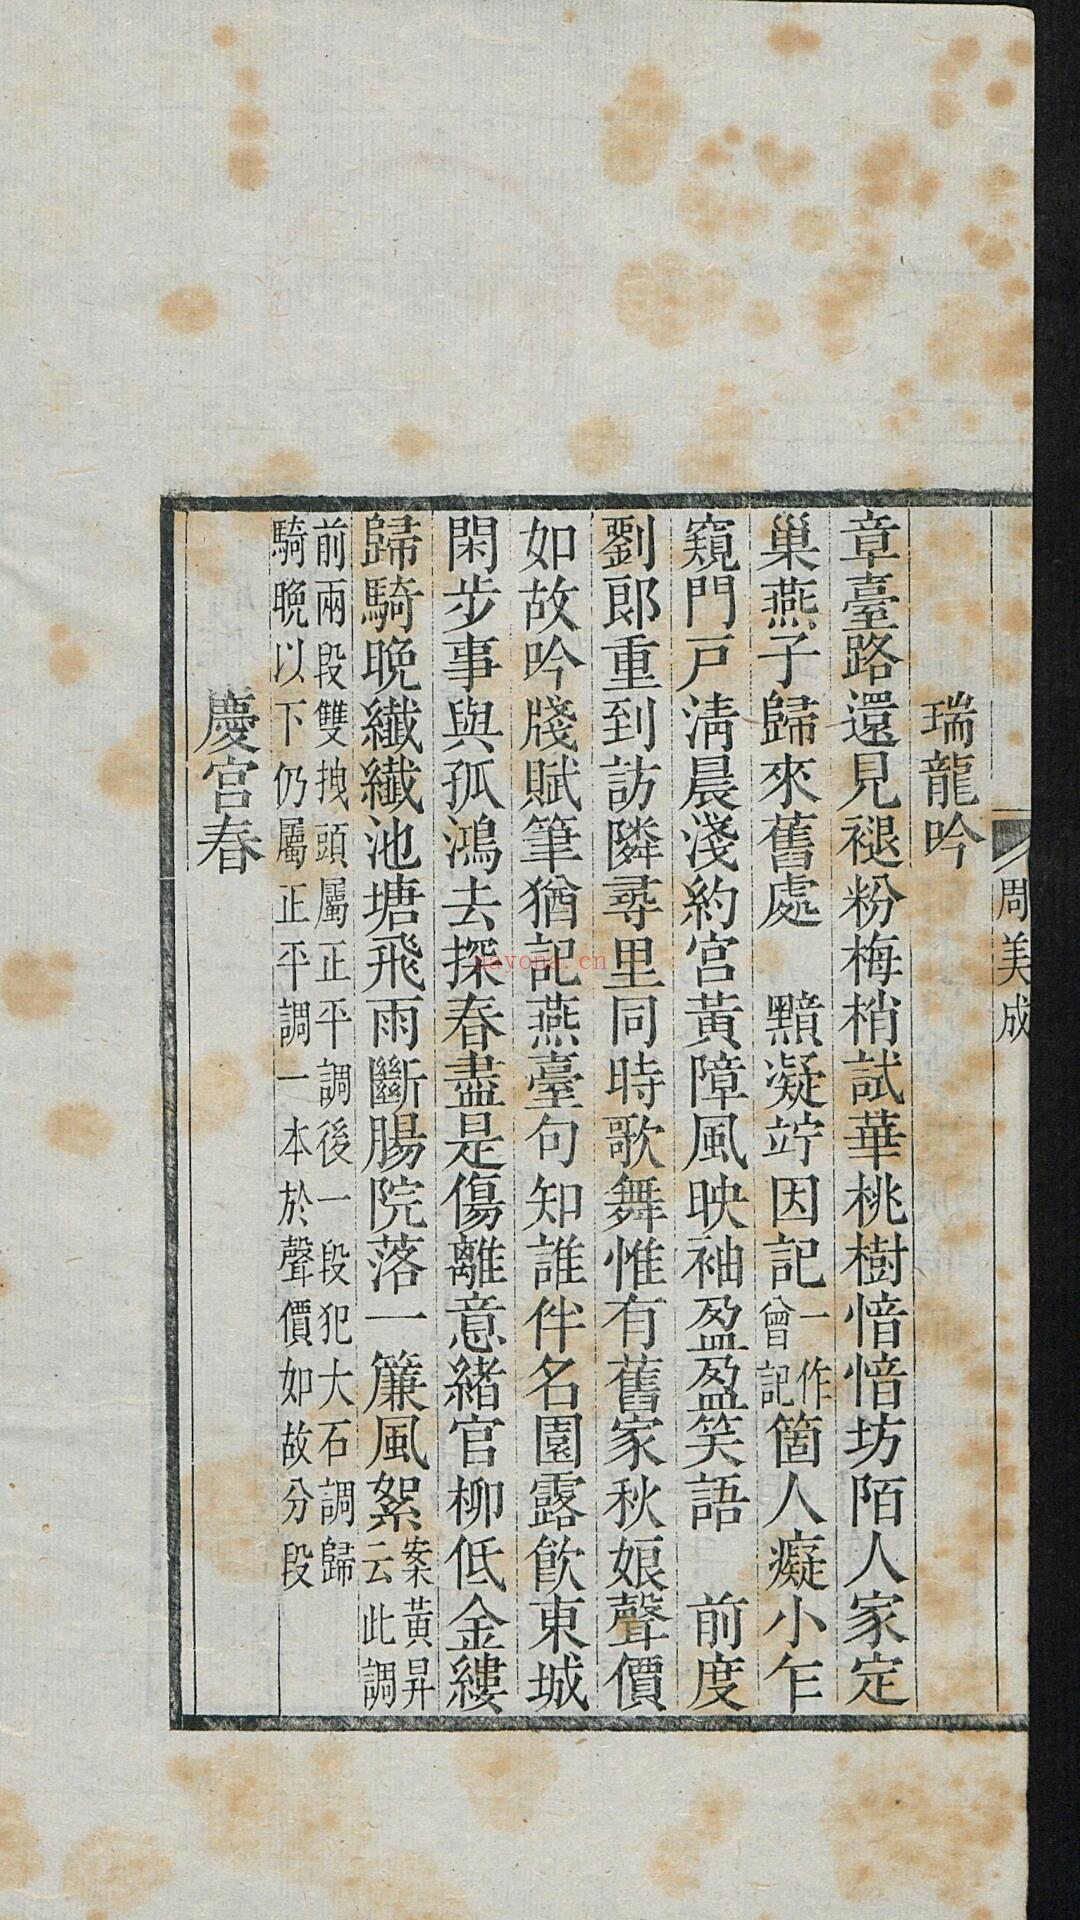 周美成
瑞龍吟
章臺路還見褪粉梅梢試華桃樹愔愔坊陌人家定
巢燕子歸來舊處　黯凝竚因記一作曾記箇人癡小乍
窺門戸淸晨淺約宮黃障風映袖盈盈笑語　前度
劉郎重到訪隣尋里同時歌舞惟有舊家秋娘聲價
如故吟牋賦筆猶記燕臺句知誰伴名園露飮東城
閑步事與孤鴻去探春盡是傷離意緒官柳低金縷
歸騎晚纖纖池塘飛雨斷腸院落一簾風絮案黃昇云此調
前兩段雙拽頭屬正平調後一段犯大石調歸
騎晚以下仍屬正平調一本於聲價如故分段
慶宮春
nayona.cn